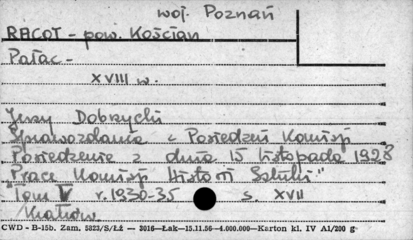 woj. Poznań
RACOT - pow. Kościan
Pałac -
XVIII w.
Jerzy Dobrzycki
Sprawozdania z Posiedzeń Komisji
Posiedzenie z dnia 15 listopada 1928
"Prace Komisji Historii Sztuki"
Tom V r. 1930-35 s. XVII
Kraków
CWD - B-15b. Zam. 5823/S/Łż — 3016—Łak—15.11.56—4.000.000—Karton kl. IV A1/200 g